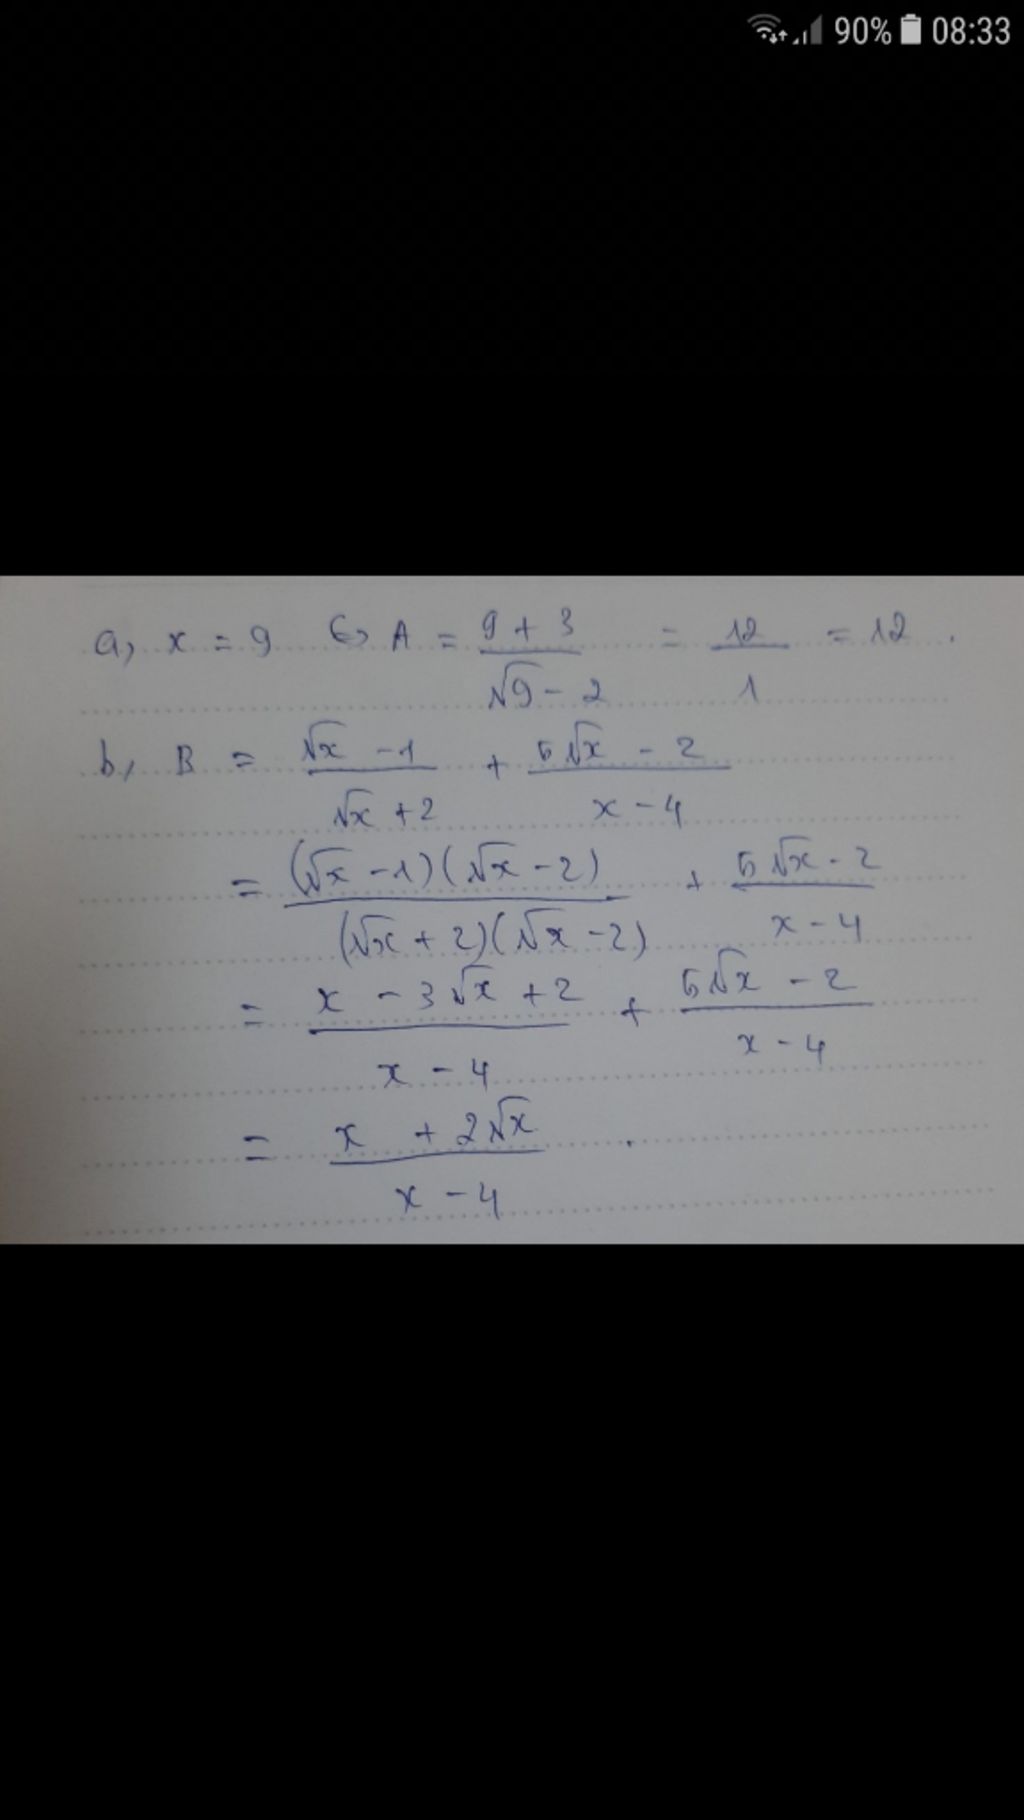 90% 08:33
a, x = 9 => A = (9 + 3)/(√9 - 2) = 12/1 = 12.
b, B = (√x - 1)/(√x + 2) + (5√x - 2)/(x - 4)
= ((√x - 1)(√x - 2))/((√x + 2)(√x - 2)) + (5√x - 2)/(x - 4)
= (x - 3√x + 2)/(x - 4) + (5√x - 2)/(x - 4)
= (x + 2√x)/(x - 4) .